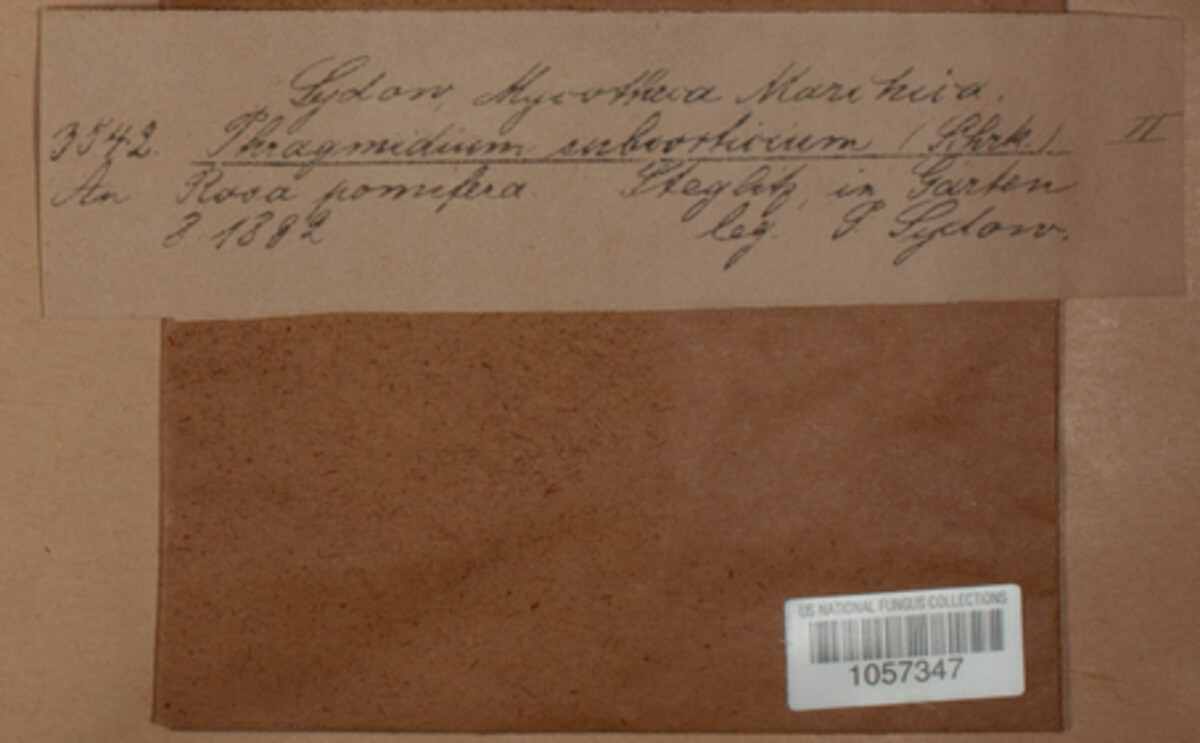 Sydow, Mycotheca Marchica.
3542. Phragmidium subcorticium (Schrk.) II
An Rosa pomifera Steglitz, in Gärten
8. 1892 leg. P. Sydow.
US NATIONAL FUNGUS COLLECTIONS
1057347